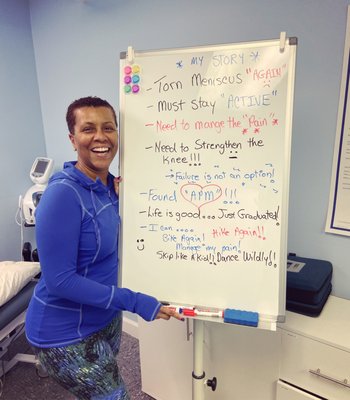 * MY STORY *
- Torn Meniscus "AGAIN"
- Must Stay "ACTIVE"
- Need to mange the "Pain"
- Need to Strengthen the
Knee!!!
→ *Failure is not an option!
- Found "APM"!!!
- Life is good.... Just Graduated!
- I can....
Hike Again!!
Bike Again!
Manage my pain!
Skip like a kid!! Dance Wildly!!